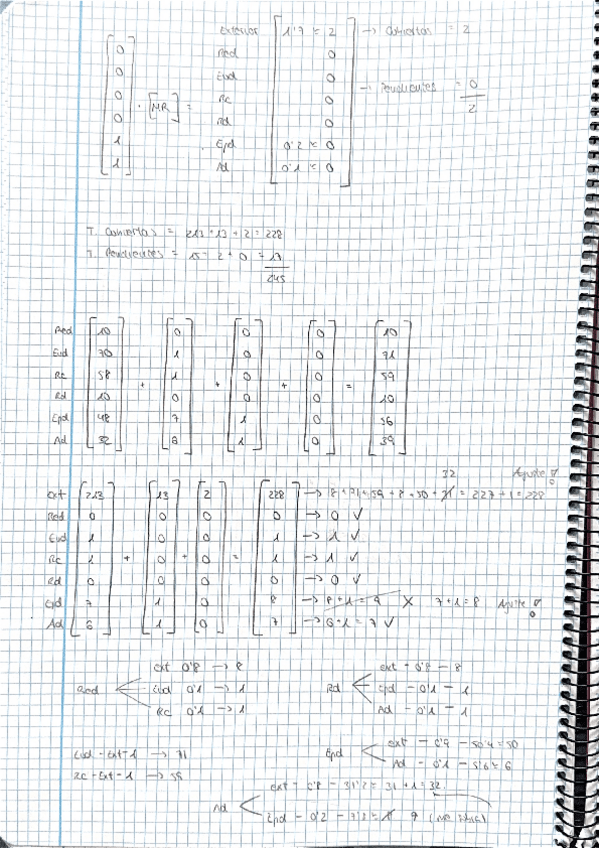 Exterior 1'7 ≈ 2 → Cubiertas = 2
Red 0
Eud 0
0 Rc 0 → Pendientes = 0
0 · [MR] = Rd 0 2
0 Epd 0'2 ≈ 0
0 Ad 0'1 ≈ 0
1
1
T. Cubiertas = 213 + 13 + 2 = 228
T. Pendientes = 15 + 2 + 0 = 17
245
Red 10 0 0 0 10
Eud 70 1 0 0 71
Rc 58 1 0 0 59
Rd 10 + 0 + 0 + 0 = 10
Epd 48 7 1 0 56
Ad 32 6 1 0 39
32 Ajuste !
Ext 213 13 2 228 → 8 + 71 + 59 + 8 + 50 + 31 = 227 + 1 = 228
Red 0 0 0 0 → 0 ✓
Eud 1 0 0 1 → 1 ✓
Rc 1 + 0 + 0 = 1 → 1 ✓
Rd 0 0 0 0 → 0 ✓
Epd 7 1 0 8 → 8 + 1 = 9 X 7 + 1 = 8 Ajuste !
Ad 6 1 0 7 → 6 + 1 = 7 ✓
Red ext 0'8 → 8
Eud 0'1 → 1
Rc 0'1 → 1
Rd ext - 0'8 - 8
Epd - 0'1 - 1
Ad - 0'1 - 1
Eud - Ext - 1 → 71
Rc - Ext - 1 → 59
Epd ext - 0'9 - 50'4 = 50
Ad - 0'1 - 5'6 ≈ 6
Ad ext - 0'8 - 31'2 = 31 + 1 = 32
Epd - 0'2 - 7'8 = 8